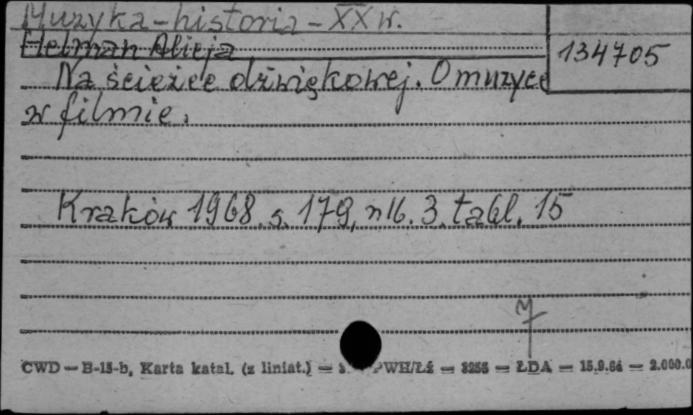 Muzyka-historia-XX w.
Helman Alicja
134705
Na ścieżce dźwiękowej. O muzyce
w filmie.
Kraków 1968. s. 179, nlb. 3. tabl. 15
CWD — B-15-b, Karta katal. (z liniat.) — PWH/Łź — 3255 — ŁDA — 15.9.64 — 2.000.0